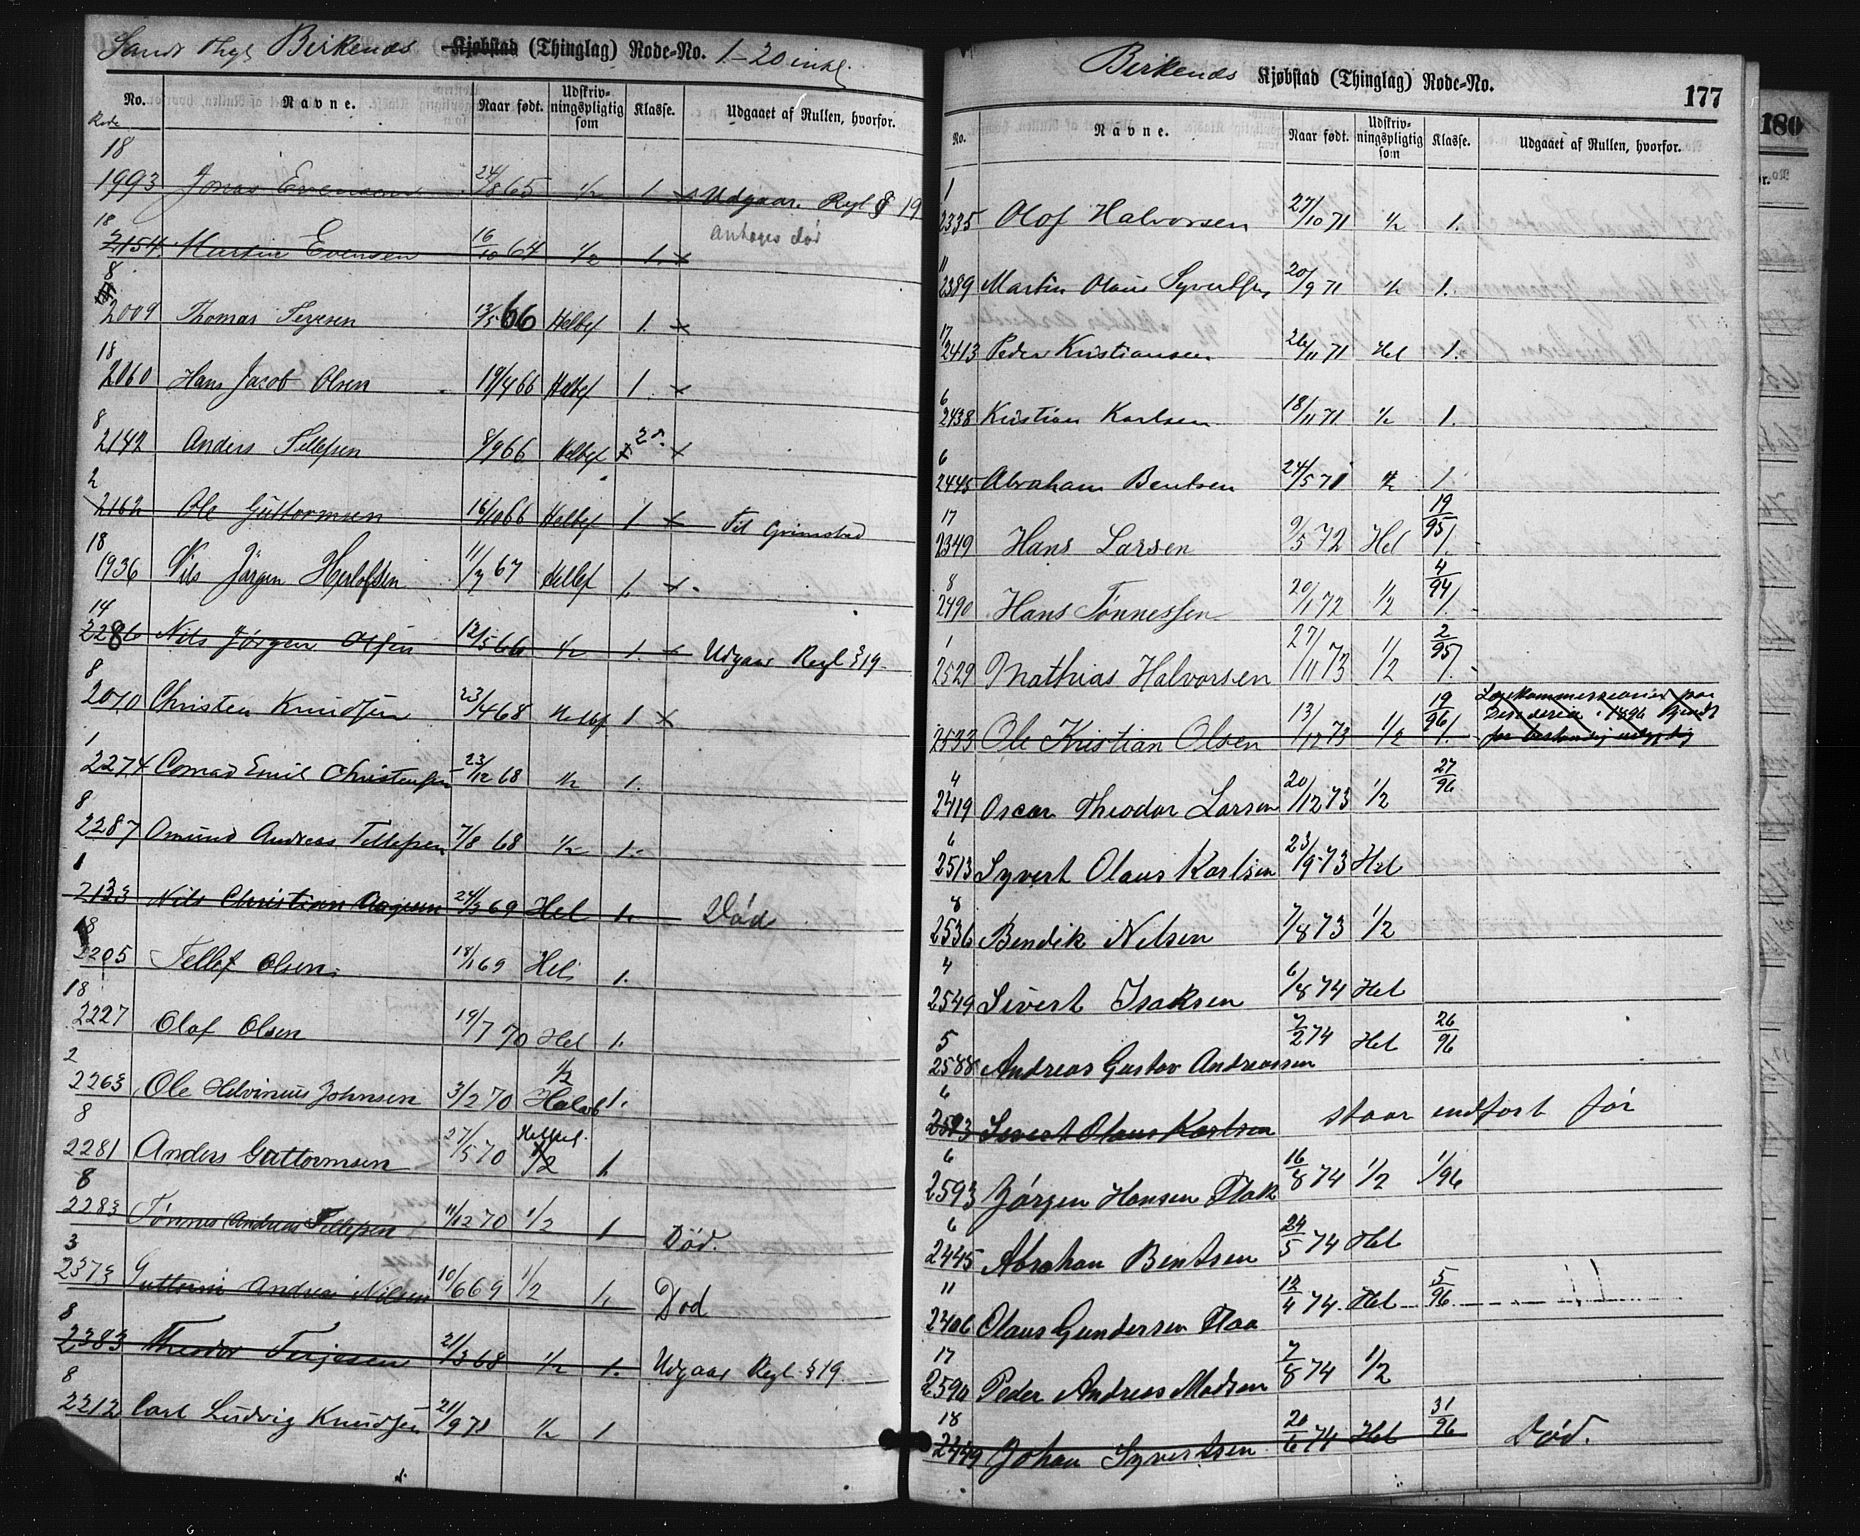 Sands Thgl Birkenes Kjøbstad (Thinglag) Rode-No. 1–20 inkl.
No. Navne. Naar født. Udskrivningspligtig som Klasse. Udgaaet af Rullen, hvorfor.
Rode
18
1993 Jonas Evensen 24/8 65 1/2 1. x Udgaar Regl § 19
18 Antages død
2154 Martin Evensen 16/10 64 1/2 1. x
8
2009 Thomas Terjesen 12/5 66 Helbef 1. x
18
2060 Hans Jacob Olsen 19/4 66 Helbef 1. x
8
2142 Anders Tellefsen 8/9 66 Helbef 2. x
2
2162 Ole Guttormsen 16/10 66 Helbef 1 x Til Grimstad
18
1936 Nils Jørgen Herlofsen 11/7 67 Helbef 1. x
14
2286 Nils Jørgen Olsen 12/5 66 1/2 1. x Udgaar Regl § 19
8
2070 Christen Knudsen 23/4 68 Helbef 1 x
1
2274 Conrad Emil Christensen 23/12 68 1/2 1.
8
2287 Omund Andreas Tellefsen 7/8 68 1/2 1.
1
2133 Nils Christian Aagesen 24/3 69 Hel 1. Død
18
2205 Tellef Olsen 18/1 69 Hel 1.
18
2227 Olaf Olsen 19/7 70 Hel 1.
2 1/2
2263 Ole Helvinius Johnsen 3/2 70 Halvb 1.
8
2281 Anders Guttormsen 27/5 70 1/2 1
8
2283 Tønnes Andreas Tellefsen 11/12 70 1/2 1 Død.
3
2373 Guttorm Andreas Nilsen 10/6 69 1/2 1. Død
8
2383 Theodor Terjesen 21/3 68 1/2 1. Udgaar Regl § 19
8
2212 Carl Ludvig Knudsen 21/9 71 1/2 1
Birkenes Kjøbstad (Thinglag) Rode-No.
177
180
No. Navne. Naar født. Udskrivningspligtig som Klasse. Udgaaet af Rullen, hvorfor.
1
2335 Olof Halvorsen 27/10 71 1/2 1.
11
2389 Martin Olaus Syvertsen 20/9 71 1/2 1.
17
2413 Peder Kristiansen 26/11 71 Hel 1.
6
2438 Kristian Karlsen 18/11 71 1/2 1.
6
2445 Abraham Bentsen 24/5 71 1/2 1
17 19/95
2349 Hans Larsen 9/5 72 Hel 1.
8 4/94
2490 Hans Tønnessen 20/1 72 1/2 1.
1 2/95
2529 Mathias Halvorsen 27/11 73 1/2 1.
19/96
2533 Ole Kristian Olsen 13/12 73 1/2 1. Lægekommissionen paa
1896
for bestandig udygtig
4
2419 Oscar Theodor Larsen 20/12 73 1/2 27/96
6
2513 Syvert Olaus Karlsen 23/9 73 Hel
8
2536 Bendik Nilsen 7/8 73 1/2
4
2549 Sivert Isaksen 6/8 74 Hel
5
2588 Andreas Gustav Andreassen 7/2 74 Hel 26/96
6
2513 Sivert Olaus Karlsen staar indført før
6
2593 Jørgen Hansen Flak 16/8 74 1/2 1/96
6
2445 Abraham Bentsen 24/5 74 Hel
11
2406 Olaus Gundersen Flaa 12/4 74 Hel 5/96
17
2590 Peder Andreas Madsen 7/8 74 1/2
18
2449 Johan Syvertsen 20/6 74 Hel 31/96 Død.